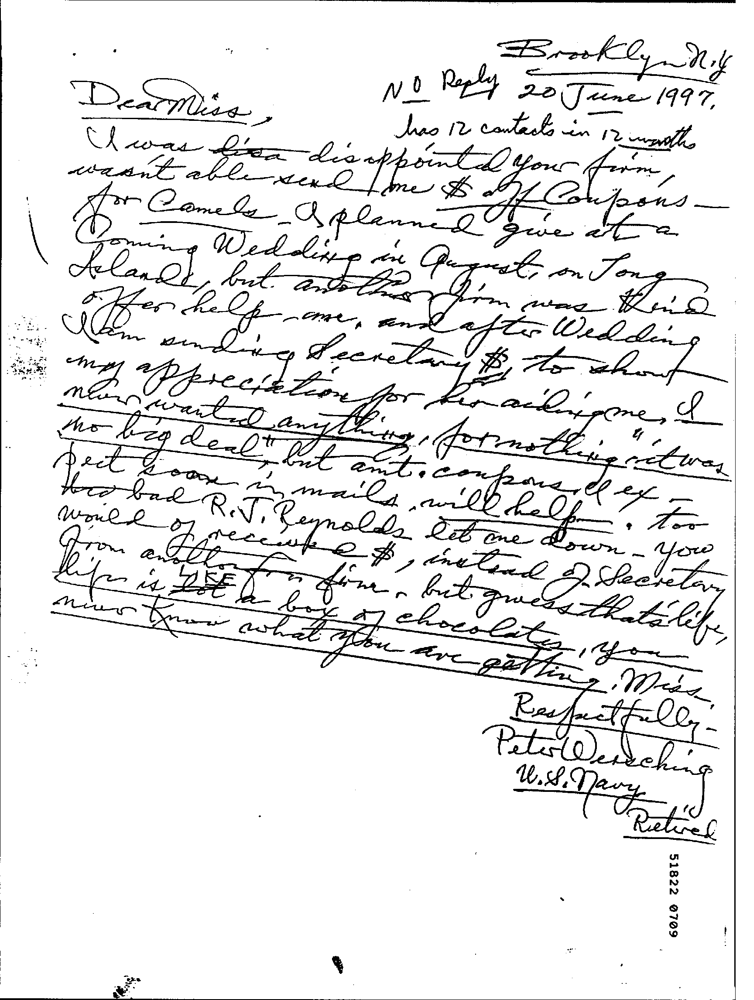 Brooklyn N.Y
No Reply 20 June 1997.
has 12 contacts in 12 months
Dear Miss,
I was disa disappointed your firm,
wasn't able send me $ off Coupons -
for Camels - I planned give at a
Coming Wedding in August, on Long
Islands, but another firm was kind
offer help me, and after Wedding
I am sending Secretary $, to show
my appreciation for her aiding me, I
never wanted anything, for nothing "it was
no big deal", but amt. coupons I ex-
pect soon in mails, will help. too
bad R.J. Reynolds let me down - you
would of received $, instead of Secretary
from another firm - but guess that's life,
life is LIKE a box of chocolates, you
never know what you are getting, Miss.
Respectfully -
Peter Wersching
U.S. Navy
Retired
51822 0709